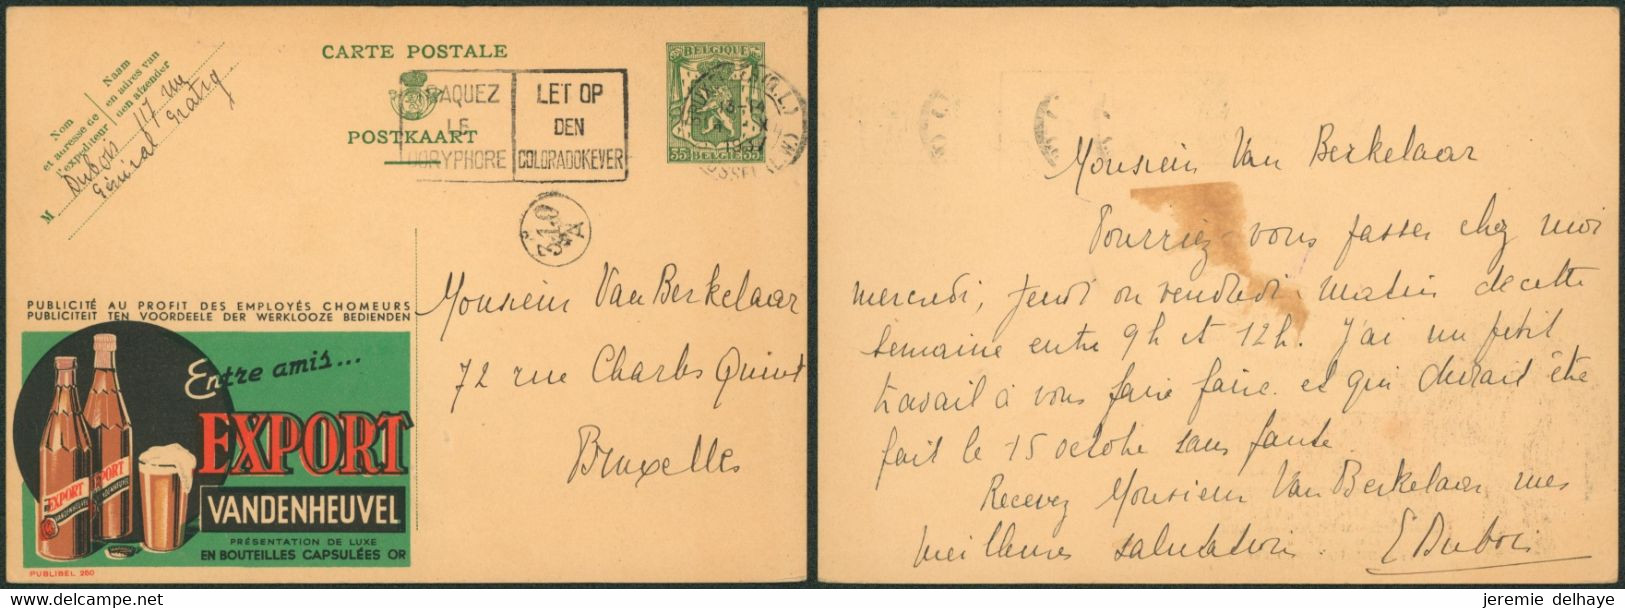 CARTE POSTALE
POSTKAART
Nom
et adresse de
l'expéditeur
Naam
en adres van
den afzender
M Dubois 17 rue
Général Gratry
TRAQUEZ
LE
DORYPHORE
LET OP
DEN
COLORADOKEVER
BELGIQUE
35 BELGIE 35
1937
310
A
PUBLICITÉ AU PROFIT DES EMPLOYÉS CHOMEURS
PUBLICITEIT TEN VOORDEELE DER WERKLOOZE BEDIENDEN
Entre amis...
EXPORT
VANDENHEUVEL
PRÉSENTATION DE LUXE
EN BOUTEILLES CAPSULÉES OR
EXPORT
VANDENHEUVEL
PUBLIBEL 260
Monsieur Van Berkelaar
72 rue Charles Quint
Bruxelles
Monsieur Van Berkelaar
Pourriez-vous passer chez moi
mercredi, jeudi ou vendredi matin de cette
semaine entre 9h et 12h. J'ai un petit
travail à vous faire faire et qui devrait être
fait le 15 octobre sans faute.
Recevez Monsieur Van Berkelaar mes
meilleures salutations. E Dubois
jeremie delhaye